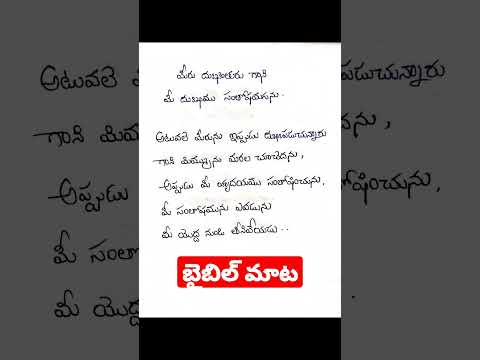 మీరు దుఃఖింతురు గాని
మీ దుఃఖము సంతోషమగును.
అటువలె మీరును ఇప్పుడు దుఃఖపడుచున్నారు
గాని మిమ్మును మరల చూచెదను,
అప్పుడు మీ హృదయము సంతోషించును,
మీ సంతోషమును ఎవడును
మీ యొద్ద నుండి తీసివేయడు..
బైబిల్ మాట